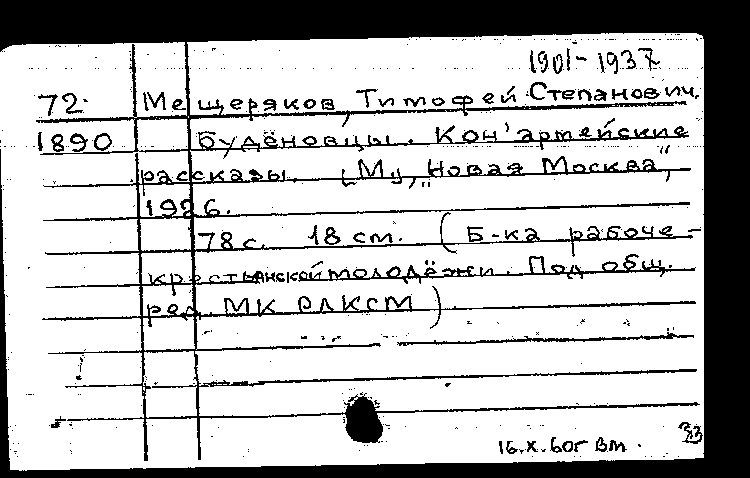 1901-1937
72. Мещеряков, Тимофей Степанович.
1890 Будёновцы. Кон'артейские
рассказы. [М], „Новая Москва“,
1926.
78 с. 18 см. (Б-ка рабоче-
крестьянской молодёжи. Под общ.
ред. МК РЛКСМ).
16.X.60г Вт.